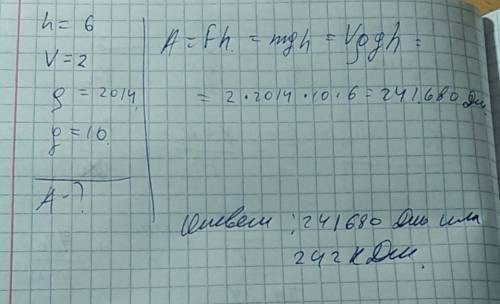 h = 6
V = 2
ρ = 2014
g = 10
A - ?
A = Fh = mgh = Vρgh =
= 2 · 2014 · 10 · 6 = 241680 Дж
Ответ: 241680 Дж или
242 кДж.